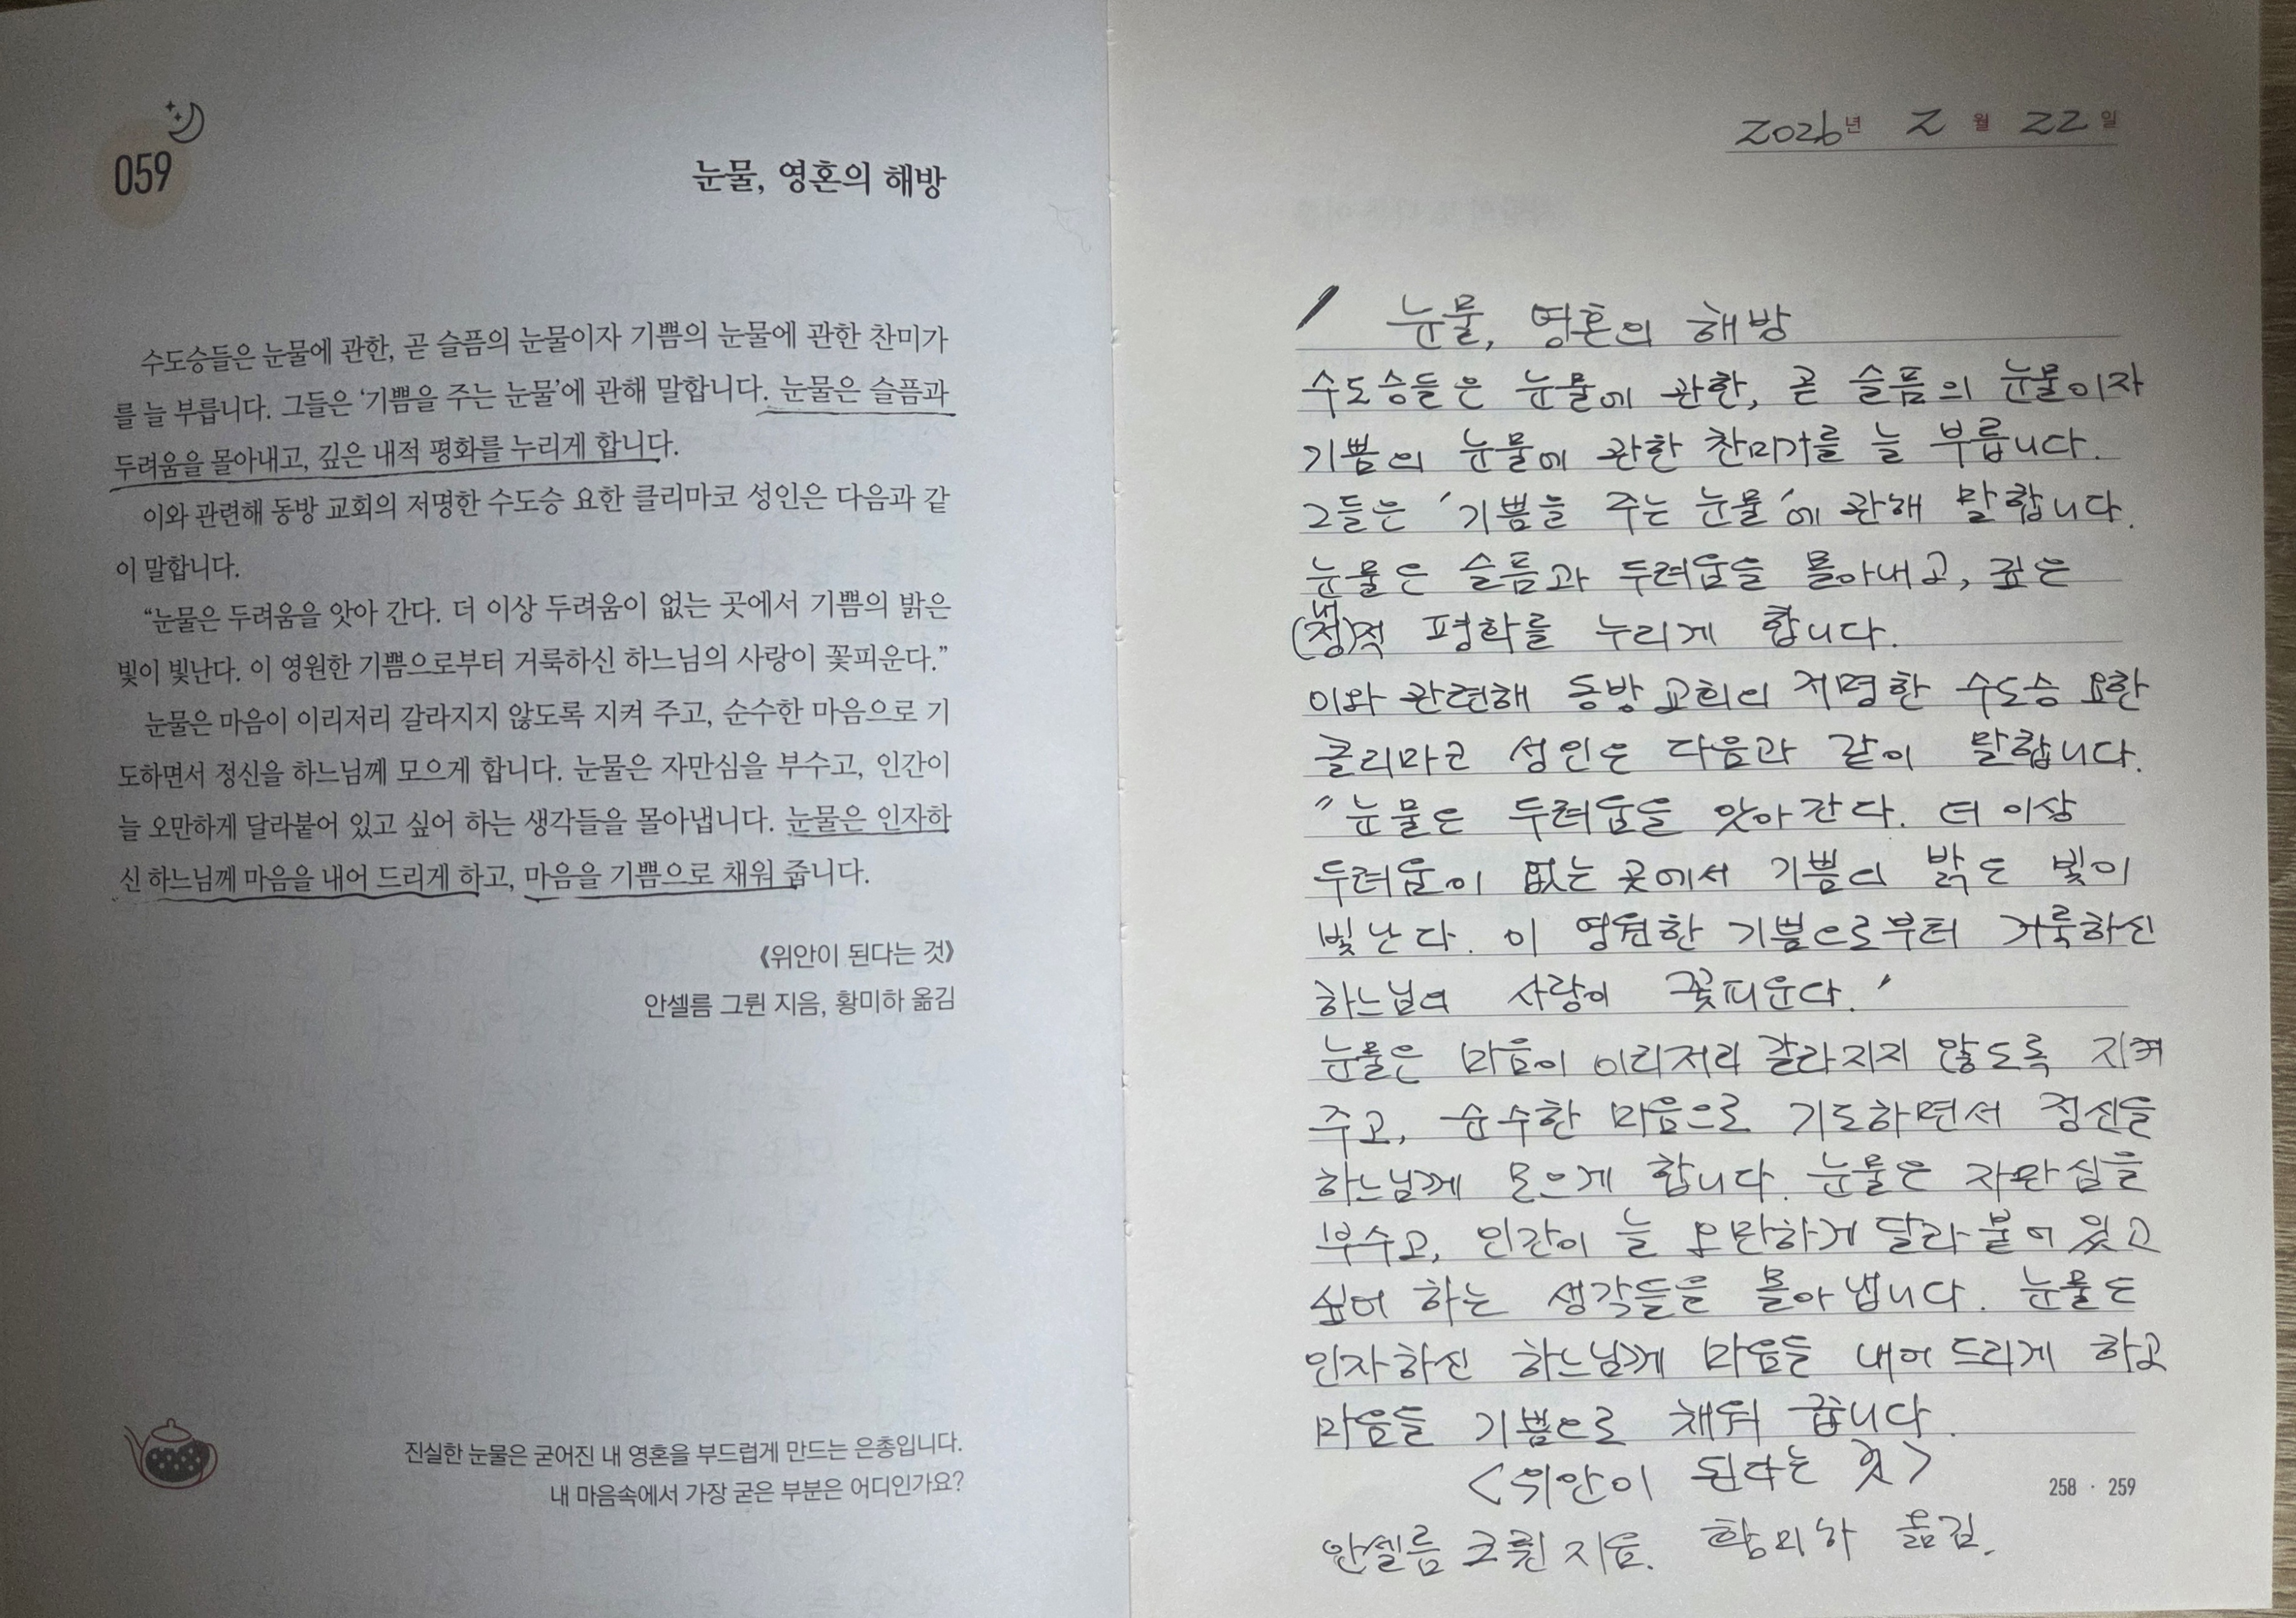 059
눈물, 영혼의 해방
수도승들은 눈물에 관한, 곧 슬픔의 눈물이자 기쁨의 눈물에 관한 찬미가
를 늘 부릅니다. 그들은 ‘기쁨을 주는 눈물’에 관해 말합니다. 눈물은 슬픔과
두려움을 몰아내고, 깊은 내적 평화를 누리게 합니다.
이와 관련해 동방 교회의 저명한 수도승 요한 클리마코 성인은 다음과 같
이 말합니다.
“눈물은 두려움을 앗아 간다. 더 이상 두려움이 없는 곳에서 기쁨의 밝은
빛이 빛난다. 이 영원한 기쁨으로부터 거룩하신 하느님의 사랑이 꽃피운다.”
눈물은 마음이 이리저리 갈라지지 않도록 지켜 주고, 순수한 마음으로 기
도하면서 정신을 하느님께 모으게 합니다. 눈물은 자만심을 부수고, 인간이
늘 오만하게 달라붙어 있고 싶어 하는 생각들을 몰아냅니다. 눈물은 인자하
신 하느님께 마음을 내어 드리게 하고, 마음을 기쁨으로 채워 줍니다.
《위안이 된다는 것》
안셀름 그륀 지음, 황미하 옮김
진실한 눈물은 굳어진 내 영혼을 부드럽게 만드는 은총입니다.
내 마음속에서 가장 굳은 부분은 어디인가요?
2026년 2월 22일
눈물, 영혼의 해방
수도승들은 눈물에 관한, 곧 슬픔의 눈물이자
기쁨의 눈물에 관한 찬미가를 늘 부릅니다.
그들은 '기쁨을 주는 눈물'에 관해 말합니다.
눈물은 슬픔과 두려움을 몰아내고, 깊은
내
(정)적 평화를 누리게 합니다.
이와 관련해 동방 교회의 저명한 수도승 요한
클리마코 성인은 다음과 같이 말합니다.
"눈물은 두려움을 앗아 간다. 더 이상
두려움이 없는 곳에서 기쁨의 밝은 빛이
빛난다. 이 영원한 기쁨으로부터 거룩하신
하느님의 사랑이 꽃피운다.'
눈물은 마음이 이리저리 갈라지지 않도록 지켜
주고, 순수한 마음으로 기도하면서 정신을
하느님께 모으게 합니다. 눈물은 자만심을
부수고, 인간이 늘 오만하게 달라붙어 있고
싶어 하는 생각들을 몰아냅니다. 눈물은
인자하신 하느님께 마음을 내어 드리게 하고
마음을 기쁨으로 채워 줍니다.
<위안이 된다는 것>
258 · 259
안셀름 그륀 지음. 황미하 옮김.